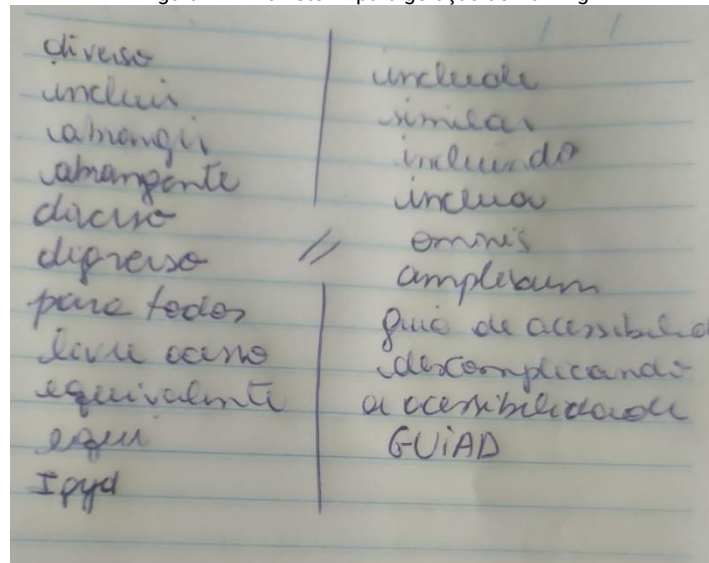 diverso
incluir
abrangir
abrangente
diverso
digverso
para todos
livre acesso
equivalente
equi
include
similar
incluindo
inclua
ominis
guia de acessibilid
descomplicando
a acessibilidade
GUIAD